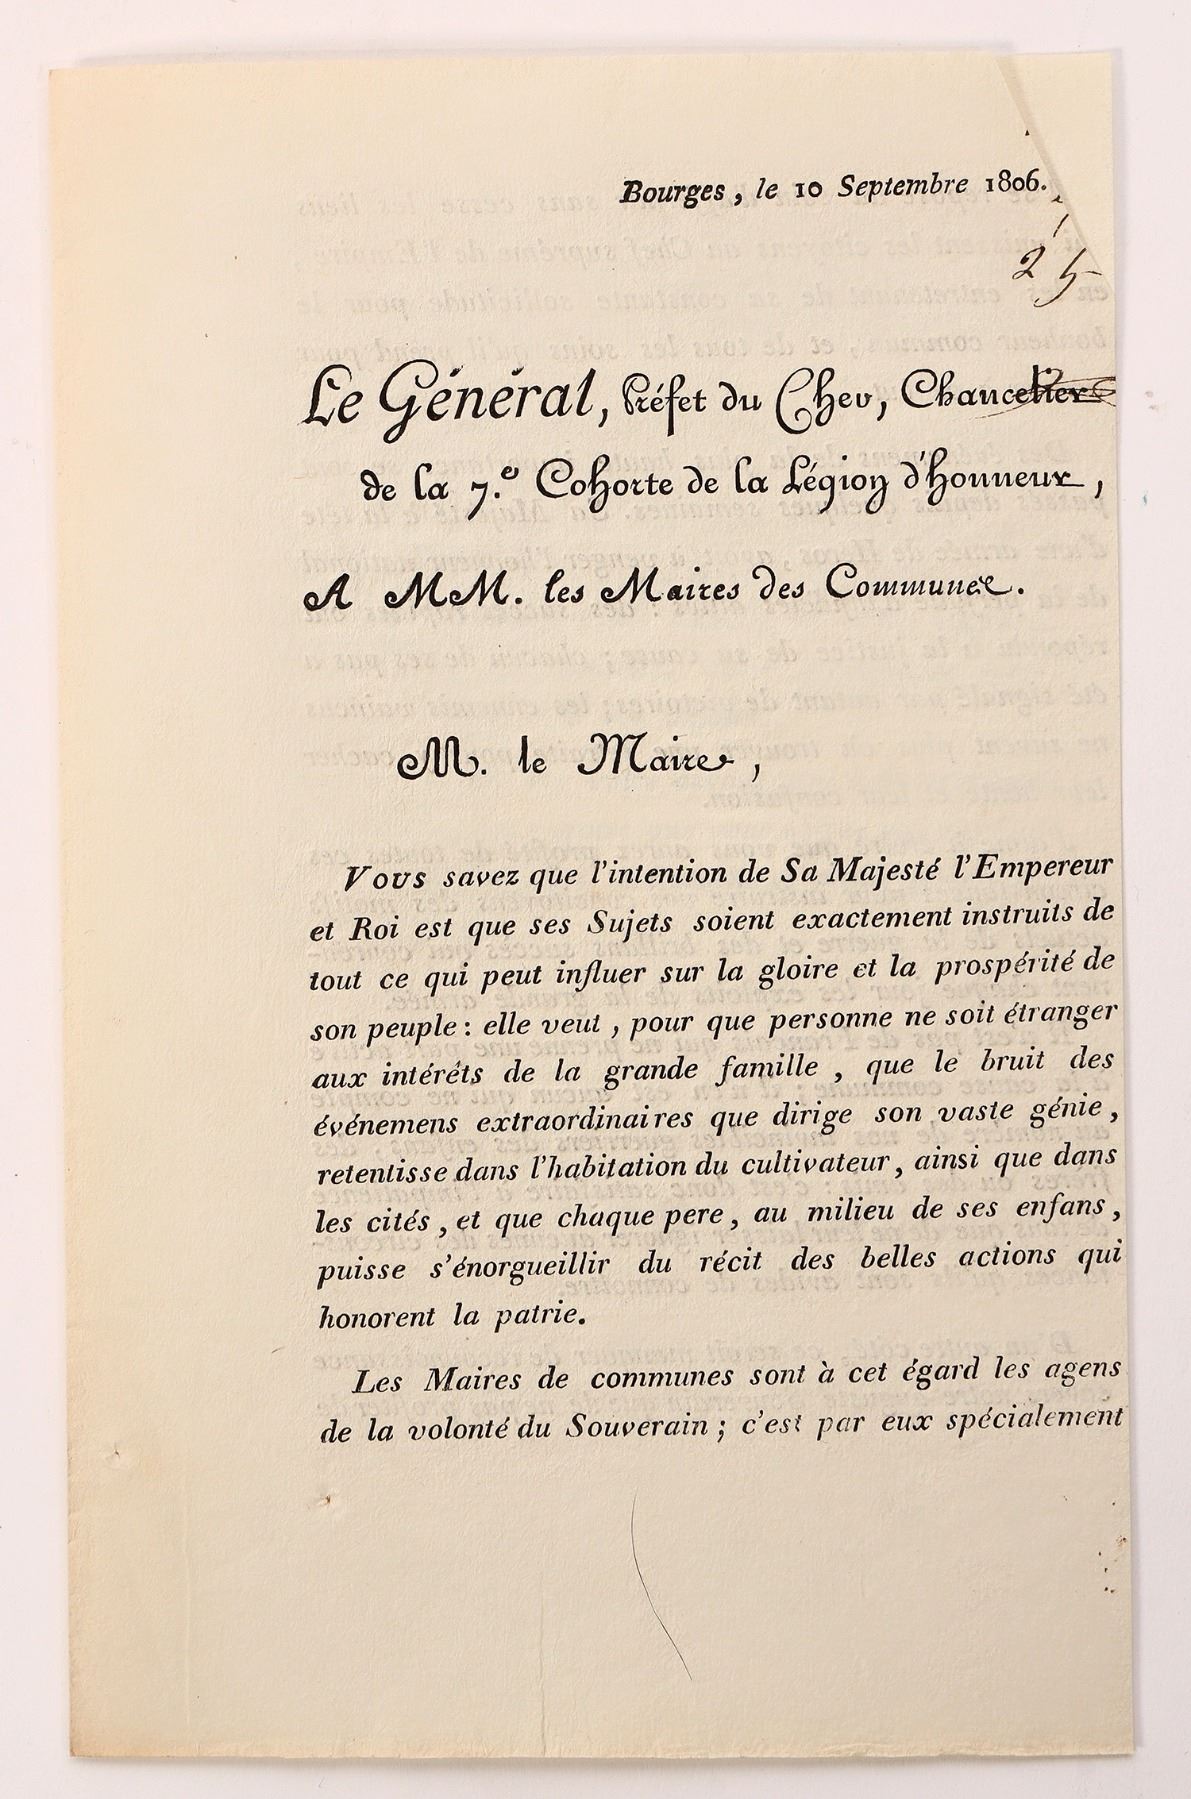 Bourges, le 10 Septembre 1806.
25
Le Général, Préfet du Cher, Chancelier
de la 7.e Cohorte de la Légion d'honneur,
A MM. les Maires des Communes.
M. le Maire,
Vous savez que l'intention de Sa Majesté l'Empereur
et Roi est que ses Sujets soient exactement instruits de
tout ce qui peut influer sur la gloire et la prospérité de
son peuple : elle veut , pour que personne ne soit étranger
aux intérêts de la grande famille , que le bruit des
événemens extraordinaires que dirige son vaste génie ,
retentisse dans l'habitation du cultivateur, ainsi que dans
les cités , et que chaque pere, au milieu de ses enfans,
puisse s'énorgueillir du récit des belles actions qui
honorent la patrie.
Les Maires de communes sont à cet égard les agens
de la volonté du Souverain ; c'est par eux spécialement